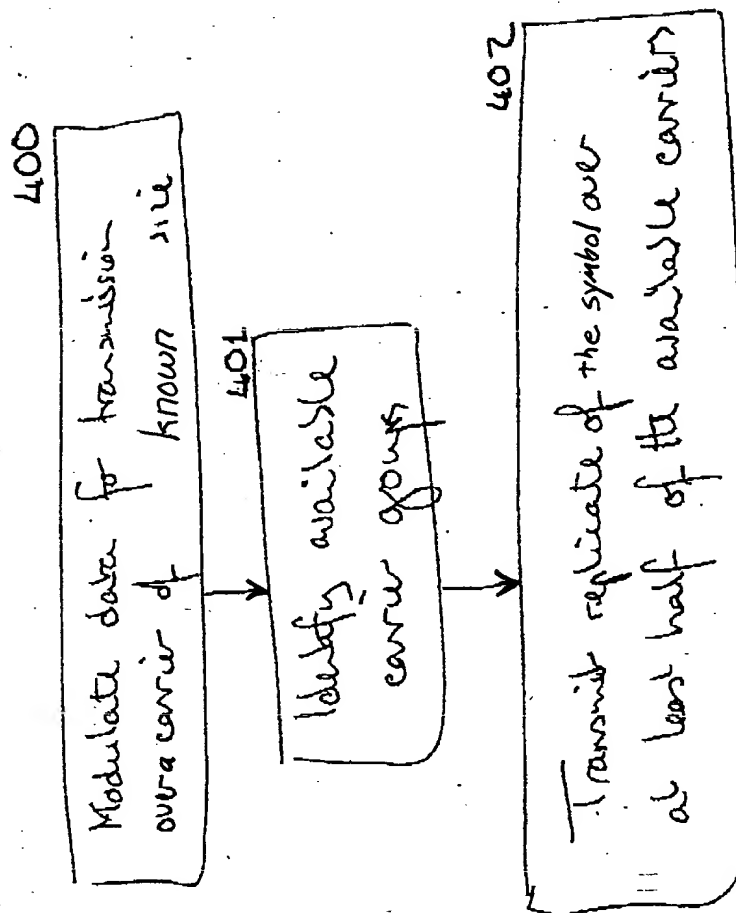 400
Modulate data for transmission
over a carrier of known size
401
Identify available
carrier groups
402
Transmit replicate of the symbol over
at least half of the available carriers